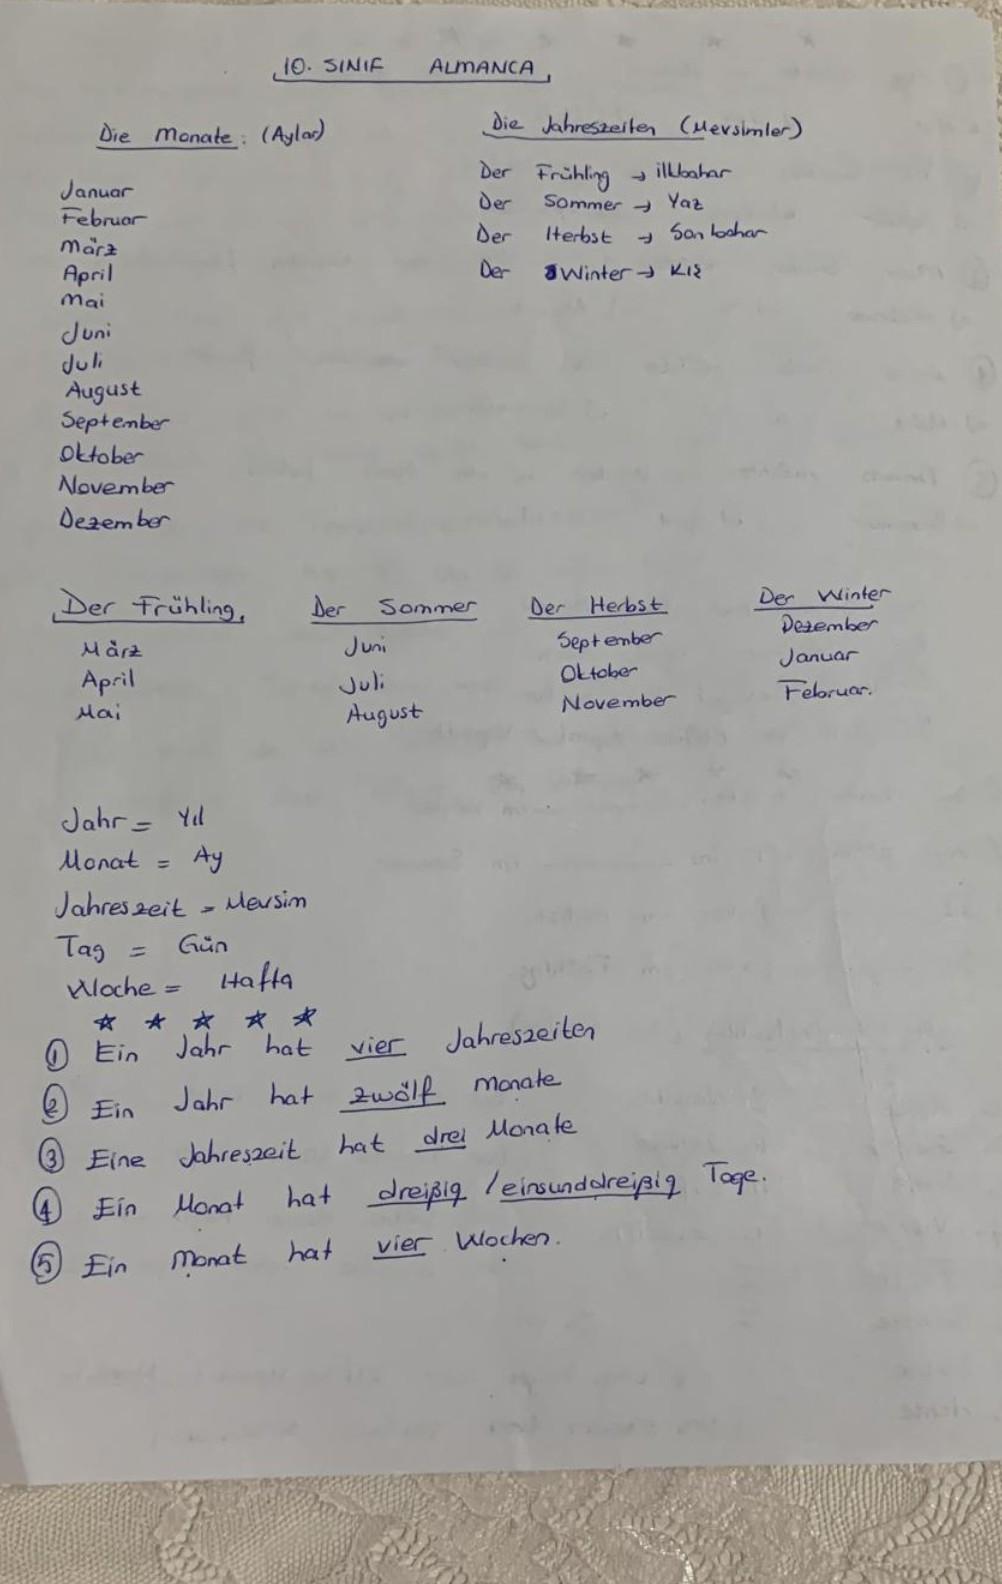 10. SINIF ALMANCA
Die Monate: (Aylar)
Januar
Februar
März
April
Mai
Juni
Juli
August
September
Oktober
November
Dezember
Die Jahreszeiten (Mevsimler)
Der Frühling → ilkbahar
Der Sommer → Yaz
Der Herbst → Son bahar
Der Winter → Kış
Der Frühling
März
April
Mai
Der Sommer
Juni
Juli
August
Der Herbst
September
Oktober
November
Der Winter
Dezember
Januar
Februar.
Jahr = Yıl
Monat = Ay
Jahreszeit = Mevsim
Tag = Gün
Woche = Hafta
① Ein Jahr hat vier Jahreszeiten
② Ein Jahr hat zwölf monate
③ Eine Jahreszeit hat drei Monate
④ Ein Monat hat dreißig / einsunddreißig Tage.
⑤ Ein Monat hat vier Wochen.